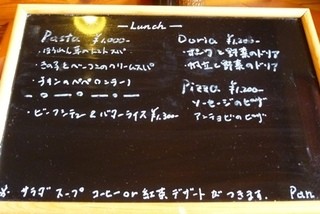 Lunch
Pasta ¥1,000-
・ほうれん草のトマトスパ
・きのことベーコンのクリームスパ
・チキンのペペロンチーノ
・ビーフシチュー&バターライス ¥1,300-
Doria ¥1,200-
と野菜のドリア
と野菜のドリア
Pizza ¥1,200-
ソーセージのピザ
アンチョビのピザ
※ サラダ スープ コーヒー or 紅茶 デザート がつきます。
Pan